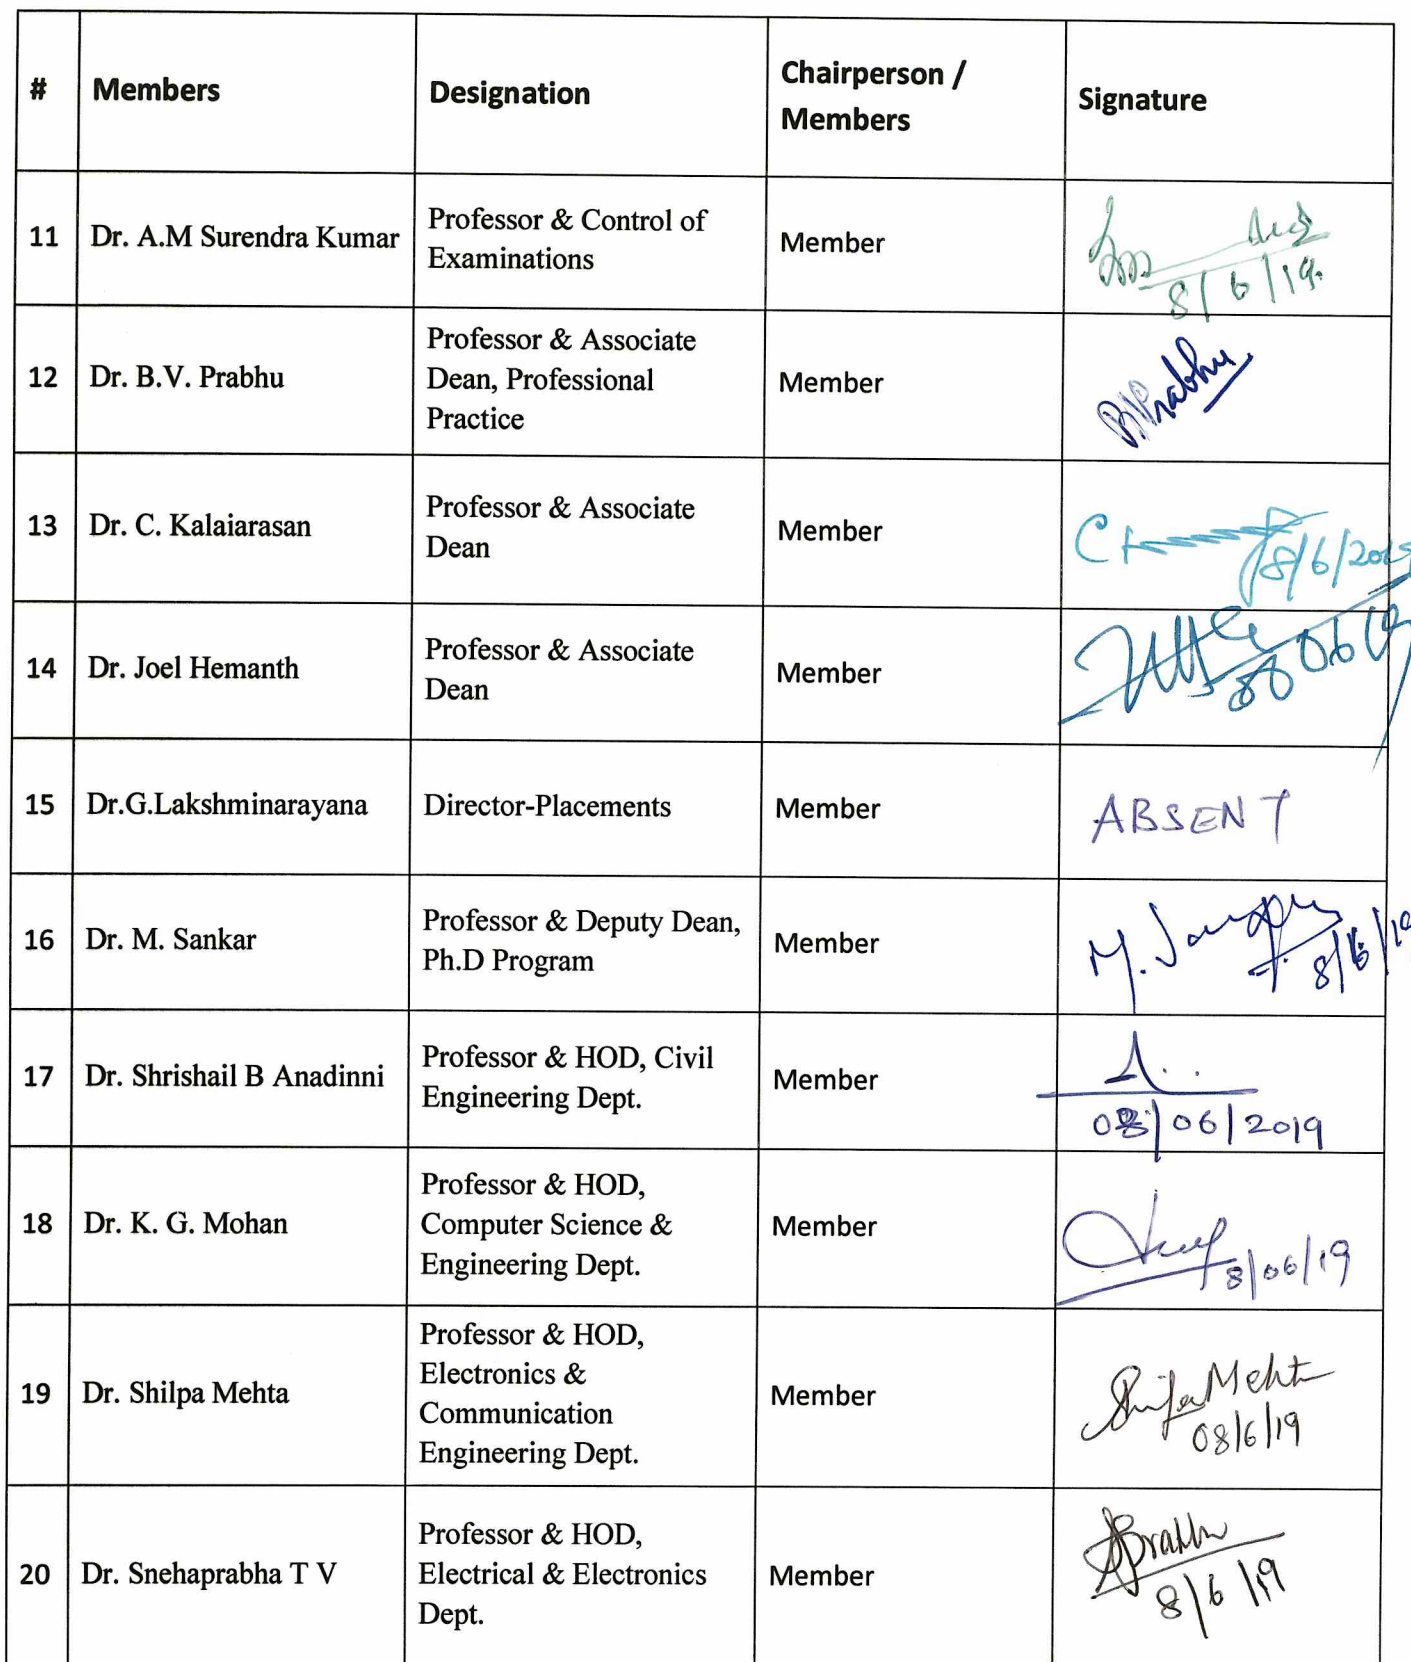 # Members Designation Chairperson / Members Signature
11 Dr. A.M Surendra Kumar Professor & Control of Examinations Member 8/6/19.
12 Dr. B.V. Prabhu Professor & Associate Dean, Professional Practice Member B.V.Prabhu
13 Dr. C. Kalaiarasan Professor & Associate Dean Member 8/6/2019
14 Dr. Joel Hemanth Professor & Associate Dean Member
15 Dr.G.Lakshminarayana Director-Placements Member ABSENT
16 Dr. M. Sankar Professor & Deputy Dean, Ph.D Program Member 8/6/19
17 Dr. Shrishail B Anadinni Professor & HOD, Civil Engineering Dept. Member 08/06/2019
18 Dr. K. G. Mohan Professor & HOD, Computer Science & Engineering Dept. Member 8/06/19
19 Dr. Shilpa Mehta Professor & HOD, Electronics & Communication Engineering Dept. Member Shilpa Mehta 08/6/19
20 Dr. Snehaprabha T V Professor & HOD, Electrical & Electronics Dept. Member 8/6/19